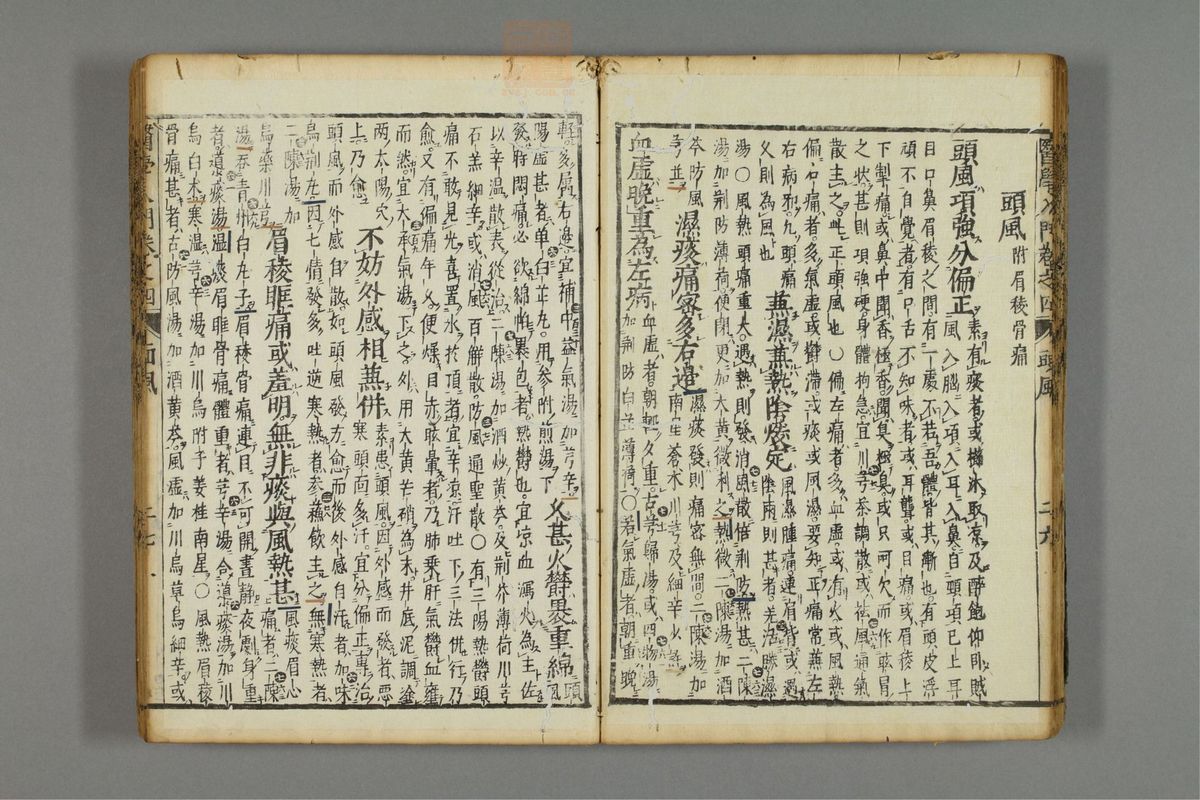 頭風 附眉稜骨痛
頭風項強分偏正 素有痰者或櫛沐取凉及醉飽仰臥賊
風入腦入項入耳入鼻自頭項已上耳
目口鼻眉稜之間有一處不若吾體皆其漸也有頭皮浮
頑不自覺者有口舌不知味者或耳聾或目痛或眉稜上
下掣痛或鼻中聞香極香聞臭極臭或只呵欠而作眩冒
之状甚則項強硬身體拘急宜川芎茶調散或祛風通氣
散主之此正頭風也〇偏左痛者多血虛或有火或風熱
偏右痛者多氣虛或鬱滞或痰或風濕要知正痛常兼左
右病邪九頭痛 兼濕兼熱隂煖定 風濕腫痛連肩背或遇
隂雨則甚者羌活勝濕
湯〇風熱頭痛重大遇熱則發消風散倍荆防熱甚二陳
湯加荆防薄荷便閉更加大黄微利之熱微二陳湯加酒
芩防風 濕痰痛密多右邊 濕痰發則痛密無間二陳湯加
南星蒼朮川芎及細辛
血虛晚重為左病 血虛者朝輕夕重芎歸湯或四物湯
加荆防白芷薄荷〇若氣虛者朝重晚
輕多屬右邊宜補中益氣湯加芎辛
陽虛甚者单白芷丸用參附煎湯下 久甚火鬱裹重綿 頭風
發時悶痛必欲綿帕裹包者熱鬱也宜凉血瀉火為主佐
以辛温散表從治二陳湯加酒炒黄芩及荆芥薄荷川芎
石羔細辛或消風百解散防風通聖散〇有三陽熱鬱頭
痛不敢見光喜置氷於頂者宜辛凉汗吐下三法併行乃
愈又有偏痛年久便燥目赤眩暈者乃肺乗肝氣鬱血壅
而然宜大承氣湯下之外用大黄芒硝為末井底泥調塗
两太陽穴
上乃愈 不妨外感相兼併 素患頭風因外感而發者悪
寒頭面多汗宜分偏正專治
頭風而外感自散如頭風發方愈而後外感自汗者加味
烏荆丸因七情發多吐逆寒熱者參蘓飲主之無寒熱者
二陳湯加
烏藥川芎 眉稜眶痛或羞明無非痰與風熱甚 風痰眉心
痛者二陳
湯吞青州白丸子眉稜骨痛連目不可開晝静夜劇身重
者導痰湯温痰眉眶骨痛體重者芎辛湯合導痰湯加川
烏白朮寒温芎辛湯加川烏附子姜桂南星〇風熱眉稜
骨痛甚者古防風湯加酒黄芩風虛加川烏草烏細辛或